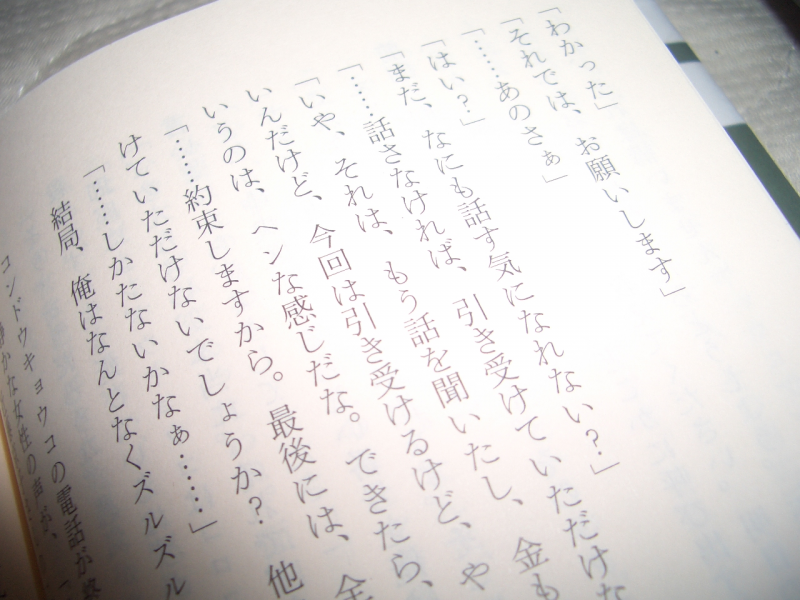 「わかった」
「それでは、お願いします」
「……あのさぁ」
「はい?」
「まだ、なにも話す気になれない?」
「……話さなければ、引き受けていただけな
「いや、それは、もう話を聞いたし、金も
いんだけど、今回は引き受けるけど、や
いうのは、ヘンな感じだな。できたら、
「……約束しますから。最後には、全
けていただけないでしょうか?　他
「……しかたないかなぁ……」
結局、俺はなんとなくズルズル
コンドウキョウコの電話が
かな女性の声が、